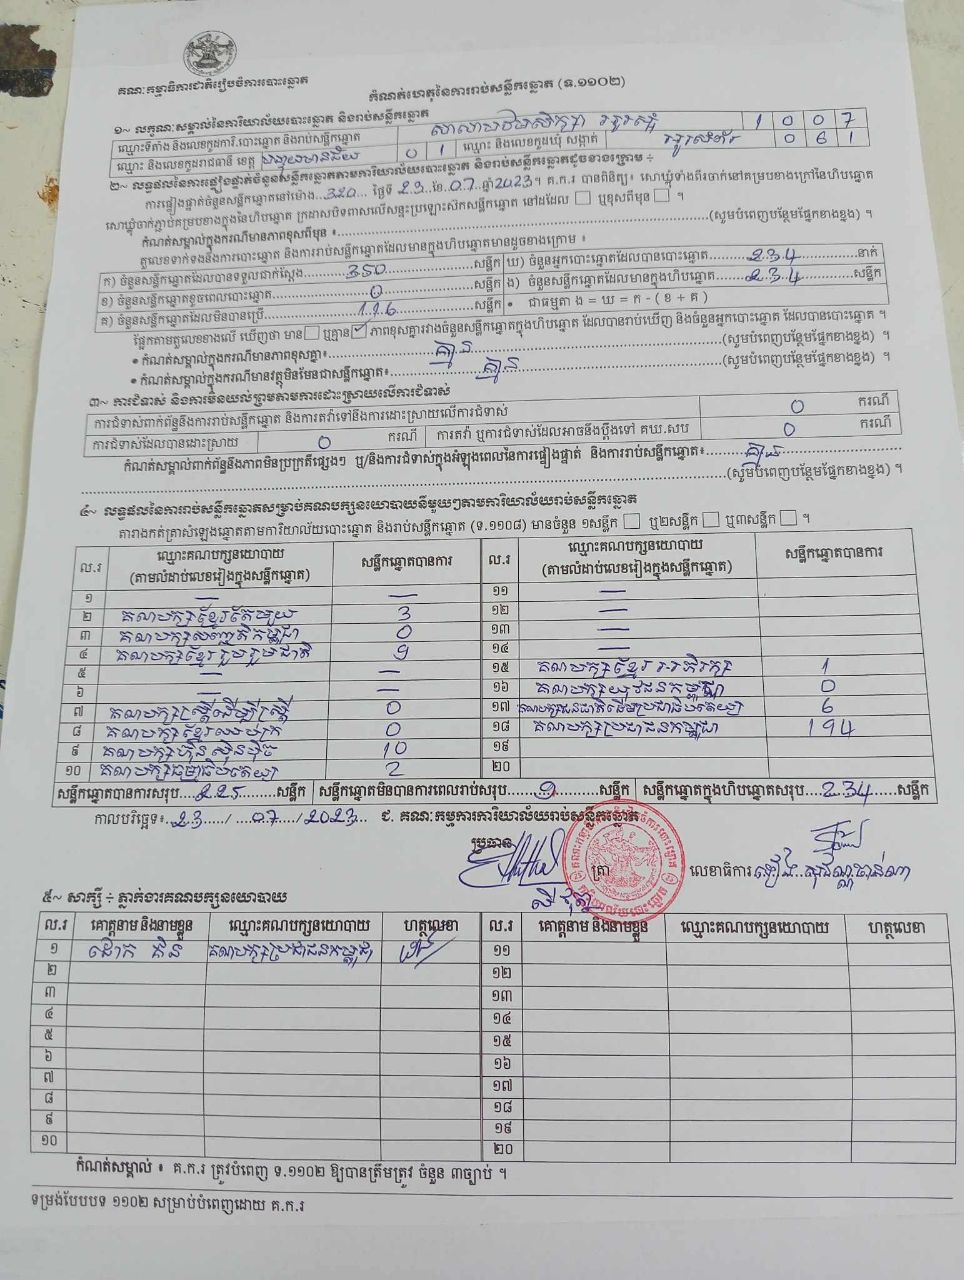 គណៈកម្មាធិការជាតិរៀបចំការបោះឆ្នោត
កំណត់ហេតុនៃការរាប់សន្លឹកឆ្នោត (ទ.១១០២)
១~ លក្ខណៈសម្គាល់នៃការិយាល័យបោះឆ្នោត និងរាប់សន្លឹកឆ្នោត
ឈ្មោះទីតាំង និងលេខកូដការិ.បោះឆ្នោត និងរាប់សន្លឹកឆ្នោត 1 0 0 7
ឈ្មោះ និងលេខកូដរាជធានី ខេត្ត បន្ទាយមានជ័យ 0 1 ឈ្មោះ និងលេខកូដឃុំ សង្កាត់ 0 6 1
២~ លទ្ធផលនៃការផ្ទៀងផ្ទាត់ចំនួនសន្លឹកឆ្នោតតាមការិយាល័យបោះឆ្នោត និងរាប់សន្លឹកឆ្នោតដូចខាងក្រោម ÷
ការផ្ទៀងផ្ទាត់ចំនួនសន្លឹកឆ្នោតនៅម៉ោង...320... ថ្ងៃទី 23 ខែ 07 ឆ្នាំ 2023។ គ.ក.រ បានពិនិត្យ៖ សោឃ្លុំទាំងពីរចាក់នៅគម្របខាងក្រៅនៃហិបឆ្នោត
សោឃ្លុំចាក់ភ្ជាប់គម្របខាងក្នុងនៃហិបឆ្នោត ក្រដាសបិទពាសលើសន្ទះប្រឡោះស៊កសន្លឹកឆ្នោត នៅដដែល ☐ ឬខុសពីមុន ☐ ។
កំណត់សម្គាល់ក្នុងករណីមានភាពខុសពីមុន ៖ (សូមបំពេញបន្ថែមផ្នែកខាងខ្នង) ។
តួលេខទាក់ទងនឹងការបោះឆ្នោត និងការរាប់សន្លឹកឆ្នោតដែលមានក្នុងហិបឆ្នោតមានដូចខាងក្រោម ៖
ក) ចំនួនសន្លឹកឆ្នោតដែលបានទទួលជាក់ស្តែង 350 សន្លឹក ឃ) ចំនួនអ្នកបោះឆ្នោតដែលបានបោះឆ្នោត 234 នាក់
ខ) ចំនួនសន្លឹកឆ្នោតខូចពេលបោះឆ្នោត 0 សន្លឹក ង) ចំនួនសន្លឹកឆ្នោតដែលមានក្នុងហិបឆ្នោត 234 សន្លឹក
គ) ចំនួនសន្លឹកឆ្នោតដែលមិនបានប្រើ 116 សន្លឹក • ជាធម្មតា ង = ឃ = ក - ( ខ + គ )
ផ្អែកតាមតួលេខខាងលើ ឃើញថា មាន ☐ ឬគ្មាន ☑ ភាពខុសគ្នារវាងចំនួនសន្លឹកឆ្នោតក្នុងហិបឆ្នោត ដែលបានរាប់ឃើញ និងចំនួនអ្នកបោះឆ្នោត ដែលបានបោះឆ្នោត ។
• កំណត់សម្គាល់ក្នុងករណីមានភាពខុសគ្នា៖ គ្មាន (សូមបំពេញបន្ថែមផ្នែកខាងខ្នង) ។
• កំណត់សម្គាល់ក្នុងករណីមានវត្ថុមិនមែនជាសន្លឹកឆ្នោត៖ គ្មាន (សូមបំពេញបន្ថែមផ្នែកខាងខ្នង) ។
៣~ ការជំទាស់ និងការមិនយល់ព្រមតាមការដោះស្រាយលើការជំទាស់
ការជំទាស់ពាក់ព័ន្ធនឹងការរាប់សន្លឹកឆ្នោត និងការតវ៉ាទៅនឹងការដោះស្រាយលើការជំទាស់ 0 ករណី
ការជំទាស់ដែលបានដោះស្រាយ 0 ករណី ការតវ៉ា ឬការជំទាស់ដែលអាចនឹងប្តឹងទៅ គឃ.សប 0 ករណី
កំណត់សម្គាល់ពាក់ព័ន្ធនឹងភាពមិនប្រក្រតីផ្សេងៗ ឬ/និងការជំទាស់ក្នុងអំឡុងពេលនៃការផ្ទៀងផ្ទាត់ និងការរាប់សន្លឹកឆ្នោត៖ គ្មាន
(សូមបំពេញបន្ថែមផ្នែកខាងខ្នង) ។
៤~ លទ្ធផលនៃការរាប់សន្លឹកឆ្នោតសម្រាប់គណបក្សនយោបាយនីមួយៗតាមការិយាល័យរាប់សន្លឹកឆ្នោត
តារាងកត់ត្រាសំឡេងឆ្នោតតាមការិយាល័យបោះឆ្នោត និងរាប់សន្លឹកឆ្នោត (ទ.១១០៨) មានចំនួន ១សន្លឹក ☐ ឬ២សន្លឹក ☐ ឬ៣សន្លឹក ☐ ។
ល.រ ឈ្មោះគណបក្សនយោបាយ (តាមលំដាប់លេខរៀងក្នុងសន្លឹកឆ្នោត) សន្លឹកឆ្នោតបានការ ល.រ ឈ្មោះគណបក្សនយោបាយ (តាមលំដាប់លេខរៀងក្នុងសន្លឹកឆ្នោត) សន្លឹកឆ្នោតបានការ
១ — — ១១ —
២ គណបក្សខ្មែរតែមួយ 3 ១២ —
៣ គណបក្សសញ្ជាតិកម្ពុជា 0 ១៣ —
៤ គណបក្សខ្មែររួបរួមជាតិ 9 ១៤ —
៥ — — ១៥ គណបក្សខ្មែរអភិរក្ស 1
៦ — — ១៦ គណបក្សយុវជនកម្ពុជា 0
៧ គណបក្សស្ត្រីដើម្បីស្ត្រី 0 ១៧ គណបក្សជនជាតិដើមប្រជាធិបតេយ្យ 6
៨ គណបក្សខ្មែរឈប់ក្រ 0 ១៨ គណបក្សប្រជាជនកម្ពុជា 194
៩ គណបក្សហ៊្វុនស៊ិនប៉ិច 10 ១៩
១០ គណបក្សធម្មាធិបតេយ្យ 2 ២០
សន្លឹកឆ្នោតបានការសរុប 225 សន្លឹក សន្លឹកឆ្នោតមិនបានការពេលរាប់សរុប 9 សន្លឹក សន្លឹកឆ្នោតក្នុងហិបឆ្នោតសរុប 234 សន្លឹក
កាលបរិច្ឆេទ៖ 23 / 07 / 2023 ជ. គណៈកម្មការការិយាល័យរាប់សន្លឹកឆ្នោត
ប្រធាន
ត្រា លេខាធិការ
៥~ សាក្សី ÷ ភ្នាក់ងារគណបក្សនយោបាយ
ល.រ គោត្តនាម និងនាមខ្លួន ឈ្មោះគណបក្សនយោបាយ ហត្ថលេខា ល.រ គោត្តនាម និងនាមខ្លួន ឈ្មោះគណបក្សនយោបាយ ហត្ថលេខា
១ គណបក្សប្រជាជនកម្ពុជា ១១
២ ១២
៣ ១៣
៤ ១៤
៥ ១៥
៦ ១៦
៧ ១៧
៨ ១៨
៩ ១៩
១០ ២០
កំណត់សម្គាល់ ៖ គ.ក.រ ត្រូវបំពេញ ទ.១១០២ ឱ្យបានត្រឹមត្រូវ ចំនួន ៣ច្បាប់ ។
ទម្រង់បែបបទ ១១០២ សម្រាប់បំពេញដោយ គ.ក.រ